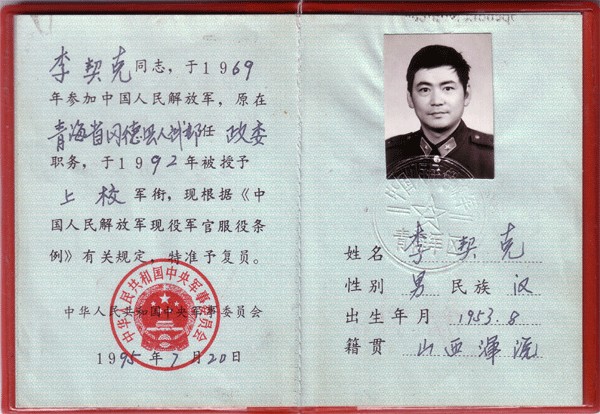 李契克同志，于1969
年参加中国人民解放军，原在
青海省同德县人武部任 政委
职务，于1992年被授予
上校 军衔，现根据《中
国人民解放军现役军官服役条
例》有关规定，特准予复员。
中华人民共和国中央军事委员会
1995年7月20日
中华人民共和国中央军事委员会
姓名 李契克
性别 男 民族 汉
出生年月 1953.8
籍贯 山西浑源